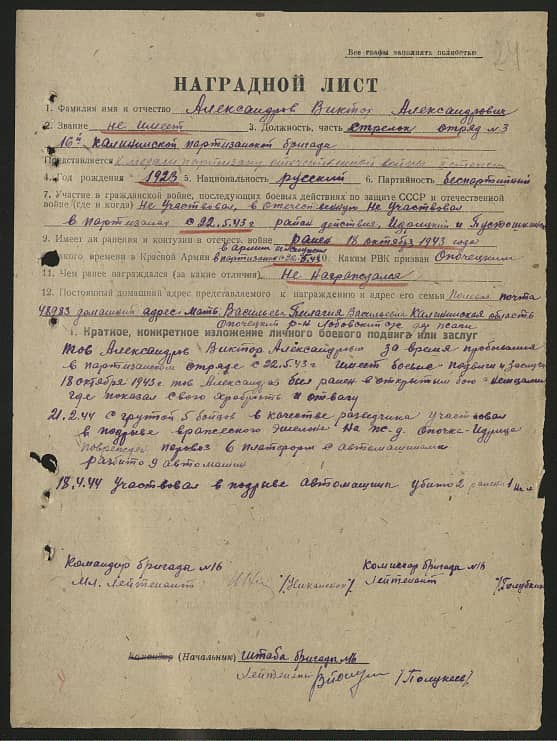 Все графы заполнять полностью
24
НАГРАДНОЙ ЛИСТ
1. Фамилия имя и отчество Александров Виктор Александрович
2. Звание не имеет 3. Должность, часть стрелок отряд №3
16й Калининской партизанской бригада
Представляется к медали партизану отечественной войны степени
4. Год рождения 1923 5. Национальность русский 6. Партийность беспартийный
7. Участие в гражданской войне, последующих боевых действиях по защите СССР и отечественной
войне (где и когда) Не Участвовал, в Отечественную не Участвовал
в партизанах с 22.5.43 г район действия Идрицкий и Пустошкинский
9. Имеет ли ранения и контузии в отечеств. войне ранен 18 октября 1943 года
в армии не служил
какого времени в Красной Армии в партизанах с 22.5.43 10. Каким РВК призван Опочецким
11. Чем ранее награждался (за какие отличия) Не Награждался
12. Постоянный домашний адрес представляемого к награждению и адрес его семьи Полевая почта
48983 домашний адрес мать Васильева Васильевна Калининская область
Опочецкий р-н
Краткое, конкретное изложение личного боевого подвига или заслуг
тов Александров Виктор Александрович за время пребывания
в партизанском отряде с 22.5.43 г имеет боевые подвиги и заслуги
18 октября 1943 г тов Александров был ранен в открытии бою с немцами
где показал свою храбрость и отвагу
21.2.44 с группой 5 бойцов в качестве разведчика участвовал
в подрыве вражеского эшелона на ж.д. Опочка-Идрица
поврежден паровоз 6 платформ с автомашинами
разбито 9 автомашин
18.4.44 Участвовал в подрыве автомащины убито 2 ранен 1
Командир бригада №16 Комиссар бригада №16
Мл. Лейтенант Лейтенант
(Начальник) Штаба бригады №16
Лейтенант